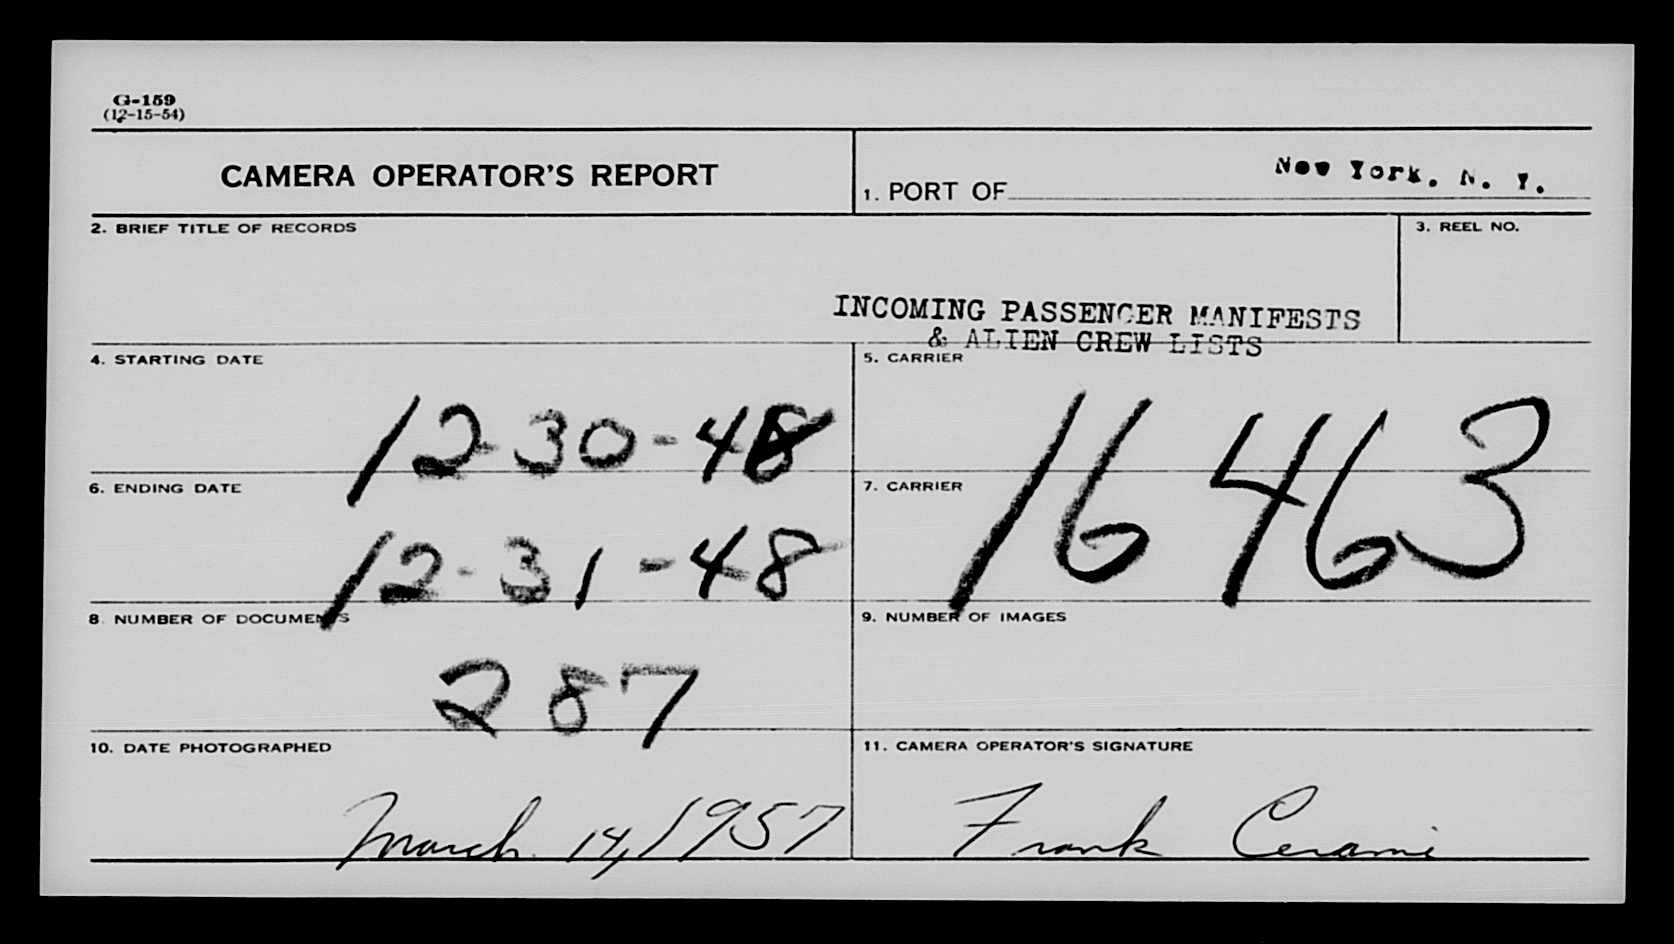 G-159
(12-15-54)
CAMERA OPERATOR'S REPORT
1. PORT OF New York, N. Y.
2. BRIEF TITLE OF RECORDS
3. REEL NO.
INCOMING PASSENGER MANIFESTS
& ALIEN CREW LISTS
4. STARTING DATE
12-30-48
5. CARRIER
16463
6. ENDING DATE
12-31-48
7. CARRIER
8. NUMBER OF DOCUMENTS
287
9. NUMBER OF IMAGES
10. DATE PHOTOGRAPHED
March 14, 1957
11. CAMERA OPERATOR'S SIGNATURE
Frank Cerami